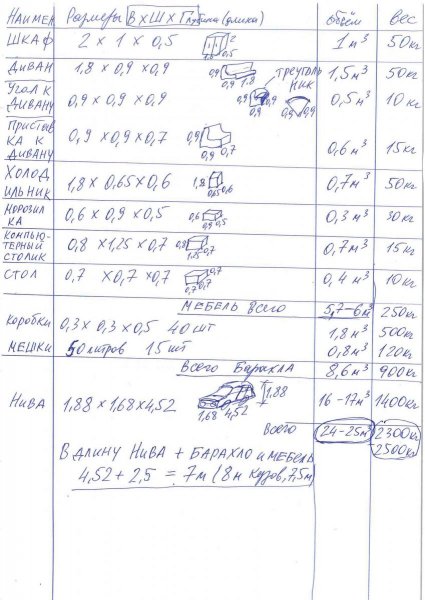 Наимен Размеры ВхШхГлубина(длина) объём вес
ШКАФ 2 х 1 х 0,5 2 1,8 0,5 1 м³ 50кг
ДИВАН 1,8 х 0,9 х 0,9 0,9 1,8 0,9 1,5 м³ 50кг
Угол к дивану 0,9 х 0,9 х 0,9 0,9 0,9 0,9 треугольник 0,9 0,9 0,5 м³ 10 кг
Приставка к дивану 0,9 х 0,9 х 0,7 0,9 0,9 0,7 0,6 м³ 15кг
Холодильник 1,8 х 0,65 х 0,6 1,8 0,65 0,6 0,7 м³ 50кг
Морозилка 0,6 х 0,9 х 0,5 0,6 0,9 0,5 0,3 м³ 30кг
Компьютерный столик 0,8 х 1,25 х 0,7 0,8 1,25 0,7 0,7 м³ 15кг
СТОЛ 0,7 х 0,7 х 0,7 0,7 0,7 0,7 0,4 м³ 10кг
МЕБЕЛЬ Всего 5,7-6м³ 250кг
коробки 0,3 х 0,3 х 0,5 40 шт 1,8 м³ 500кг
МЕШКИ 50 литров 15 шт 0,8 м³ 120кг
Всего Барахла 8,6 м³ 900кг
НИВА 1,88 х 1,68 х 4,52 1,68 4,52 1,88 16-17м³ 1400кг
Всего 24-25м³ 2300кг
2500кг
В ДЛИНУ НИВА + БАРАХЛО и МЕБЕЛЬ
4,52 + 2,5 = 7м (8м Кузов, 7,5м)